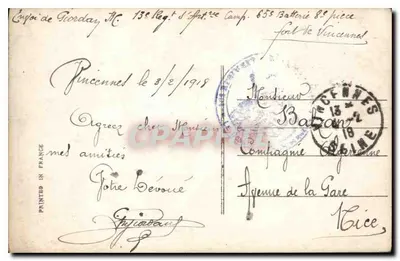 Envoi de Giordan M. 13e Regt d'Artie Camp. 65e Batterie 8e pièce
fort de Vincennes
Vincennes le 3/2/1918
Agréez cher
mes amitiés
Votre Dévoué
Giordan
Monsieur
Compagnie
Avenue de la Gare
Nice
VINCENNES
13 *
-2
18
SEINE
PAINTED IN FRANCE